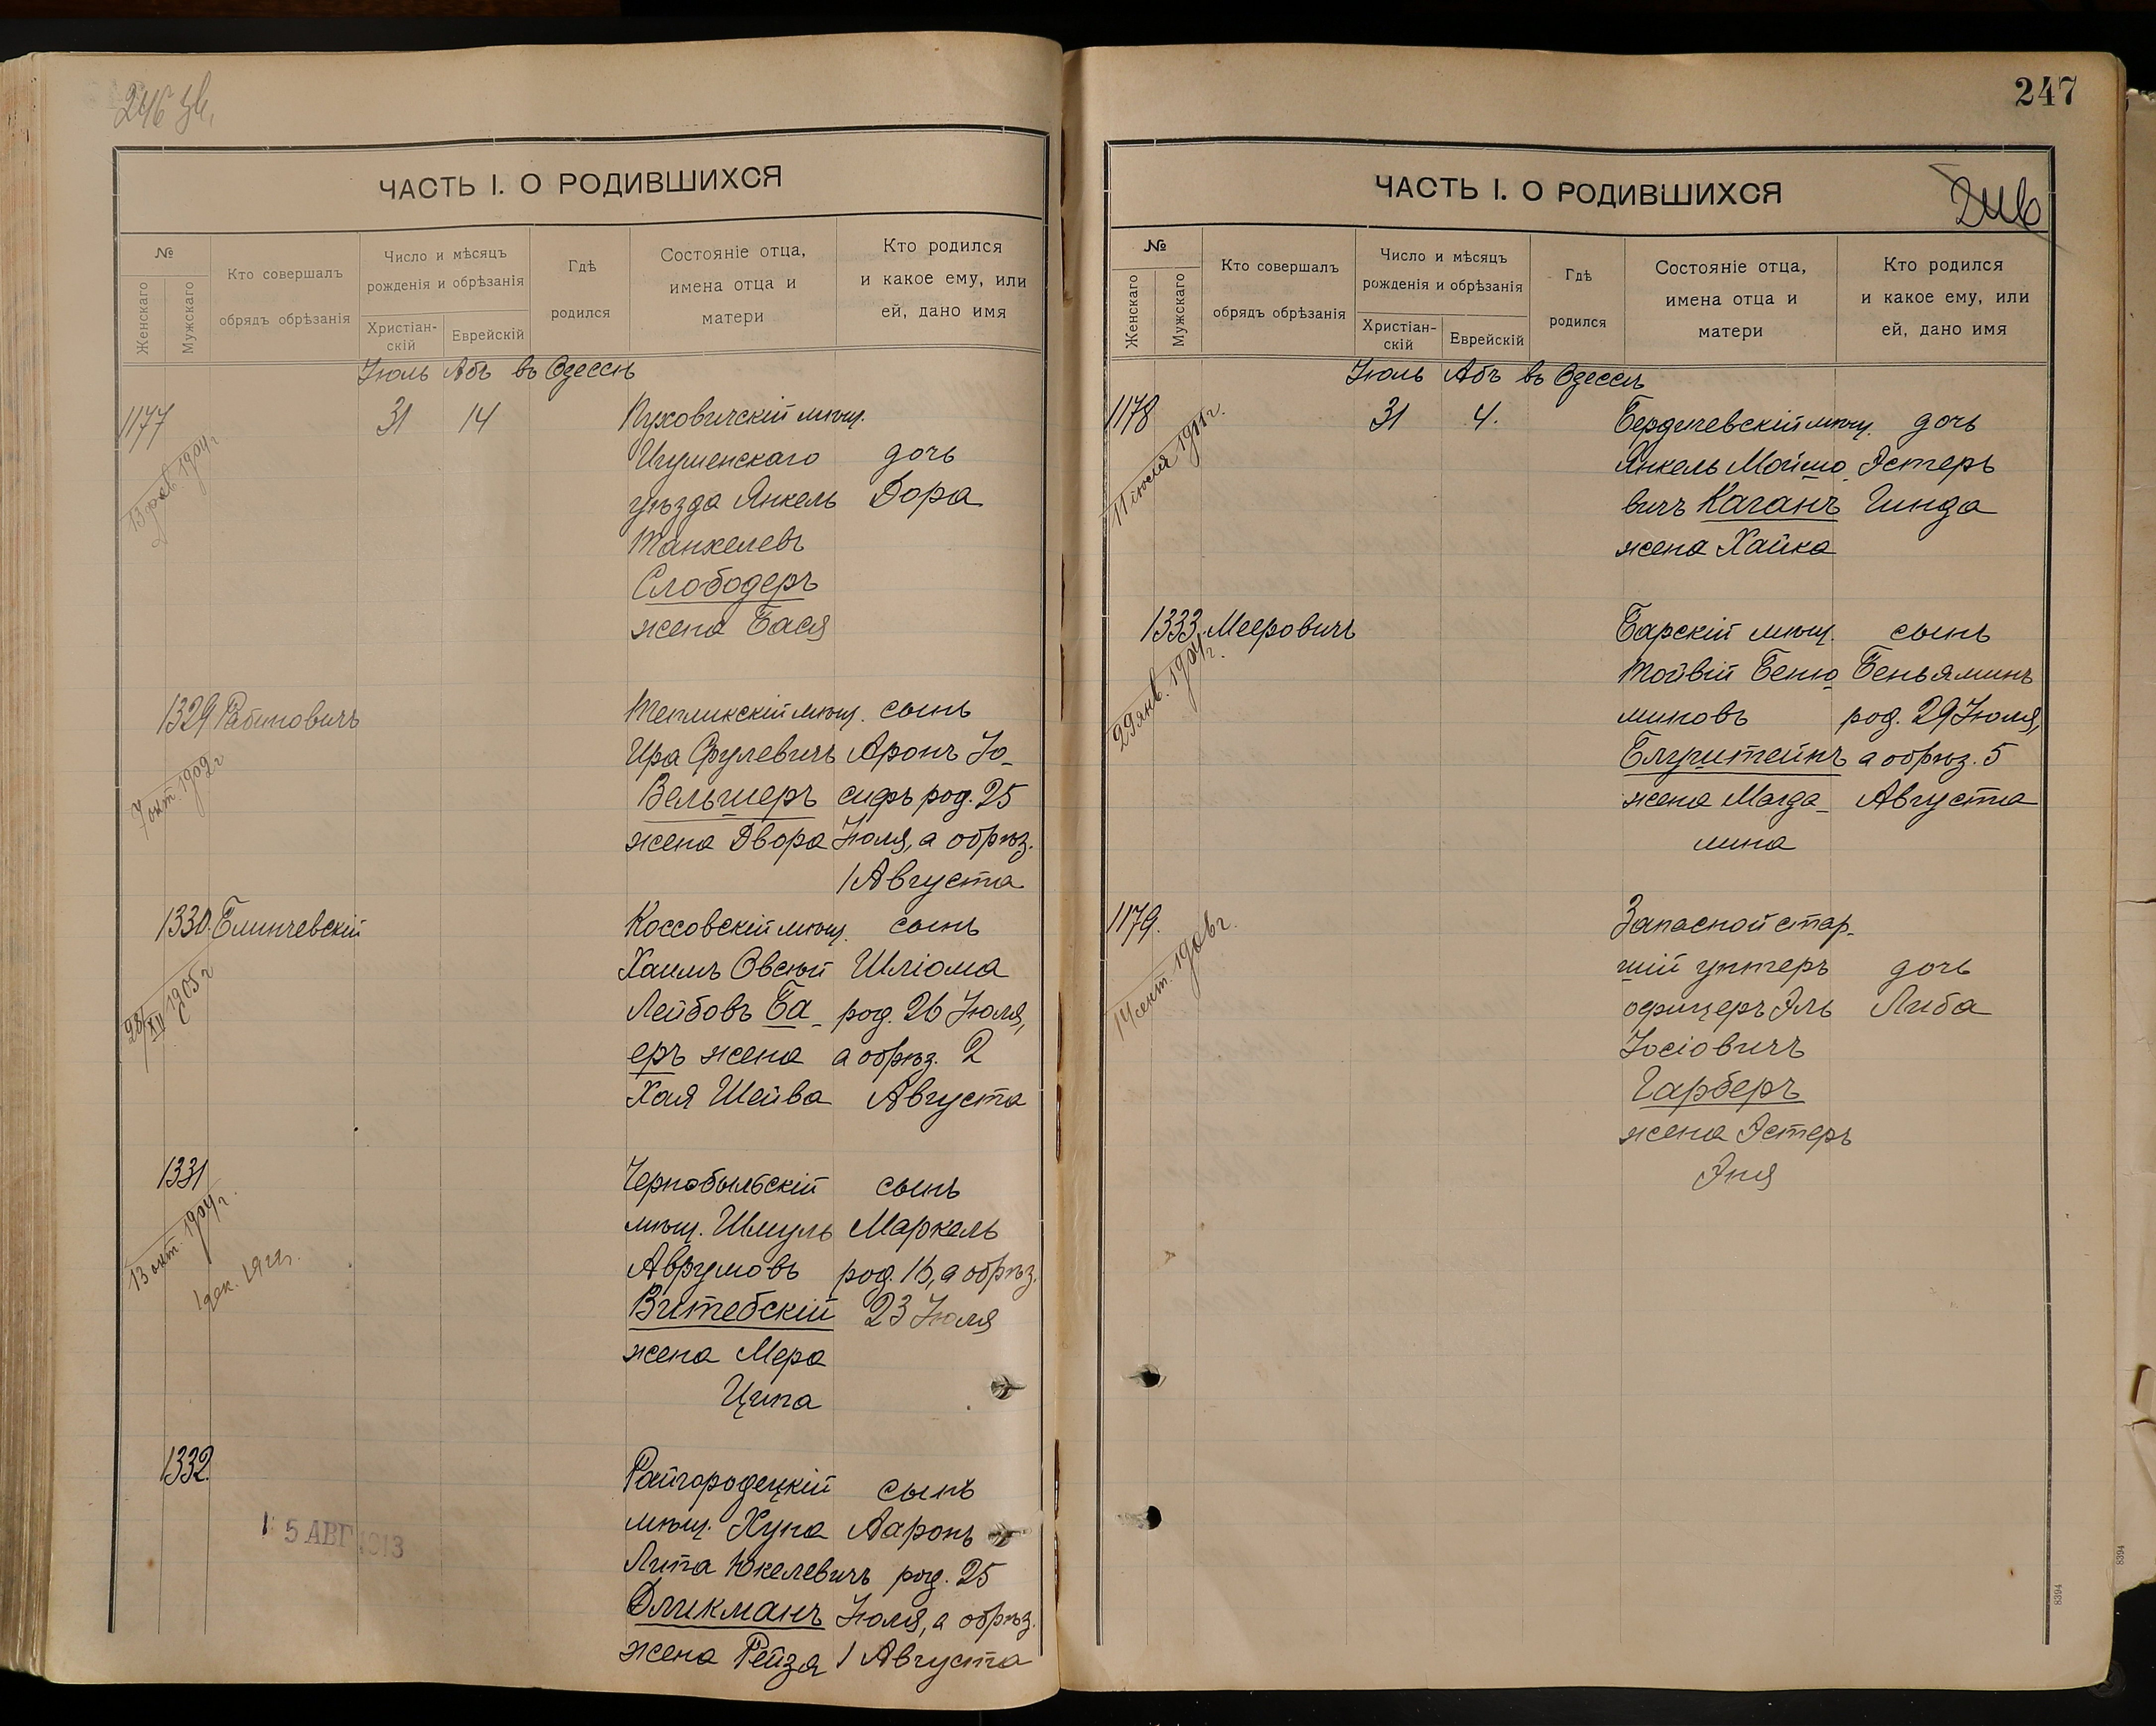 246 зв.
ЧАСТЬ I. О РОДИВШИХСЯ
№
Женскаго
Мужскаго
Кто совершалъ
обрядъ обрѣзанія
Число и мѣсяцъ
рожденія и обрѣзанія
Христіан-
скій
Еврейскій
Гдѣ
родился
Состояніе отца,
имена отца и
матери
Кто родился
и какое ему, или
ей, дано имя
Іюль Абъ въ Одессѣ
1177
31 14
Пуховичскій мѣщ.
Игуменскаго дочь
уѣзда Янкель Дора
Танхелевъ
Слободеръ
жена Бася
1329 Рабиновичъ
7 окт. 1909 г
Тепликскій мѣщ. сынъ
Ира Фулевичъ Аронъ Іо-
Вельшеръ сифъ род. 25
жена Двора Іюля, а обрѣз.
1 Августа
1330. Блинчевскій
28/XII 1905 г
Коссовскій мѣщ. сынъ
Хаимъ Овсѣй Шліома
Лейбовъ Ба- род. 26 Іюля,
еръ жена а обрѣз. 2
Хая Шейва Августа
1331
13 окт. 1904 г.
Чернобыльскій сынъ
мѣщ. Шмуль Маркель
Аврумовъ род. 16, а обрѣз.
Витебскій 23 Іюля
жена Мера
Ципа
1332.
5 АВГ 1913
Райгородецкій сынъ
мѣщ. Хуна Ааронъ
Липа Юкелевичъ род. 25
Гликманъ Іюля, а обрѣз.
жена Рейзя 1 Августа
247
ЧАСТЬ I. О РОДИВШИХСЯ
246
№
Женскаго
Мужскаго
Кто совершалъ
обрядъ обрѣзанія
Число и мѣсяцъ
рожденія и обрѣзанія
Христіан-
скій
Еврейскій
Гдѣ
родился
Состояніе отца,
имена отца и
матери
Кто родился
и какое ему, или
ей, дано имя
Іюль Абъ въ Одессѣ
1178
11 іюля 1911 г.
31 4.
Бердичевскій мѣщ. дочь
Янкель Мойшо- Эстеръ
вичъ Каганъ Гинда
жена Хайка
1333. Мееровичъ
29 янв. 1904 г.
Барскій мѣщ. сынъ
Тойвій Беню- Беньяминъ
миновъ род. 29 Іюля,
Блуштейнъ а обрѣз. 5
жена Магда- Августа
лина
1179.
14 сент. 1906 г.
Запасной стар-
шій унтеръ дочь
офицеръ Эль Либа
Іосіовичъ
Гарберъ
жена Эстеръ
Эня
8394
8394